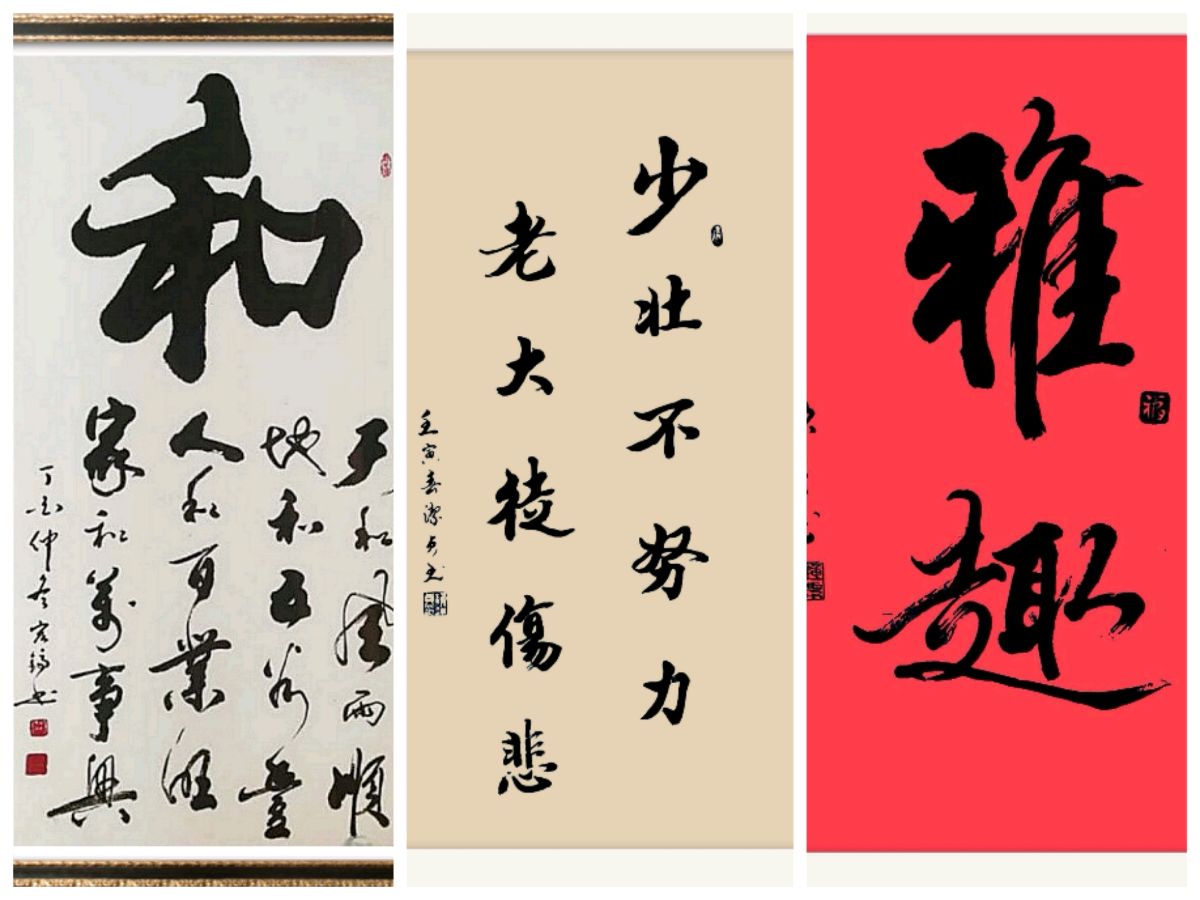 和
天和風雨順
地和五谷豊
人和百業旺
家和萬事興
丁酉仲冬宏錦书
少壯不努力
老大徒傷悲
壬寅春潔貞书
雅趣